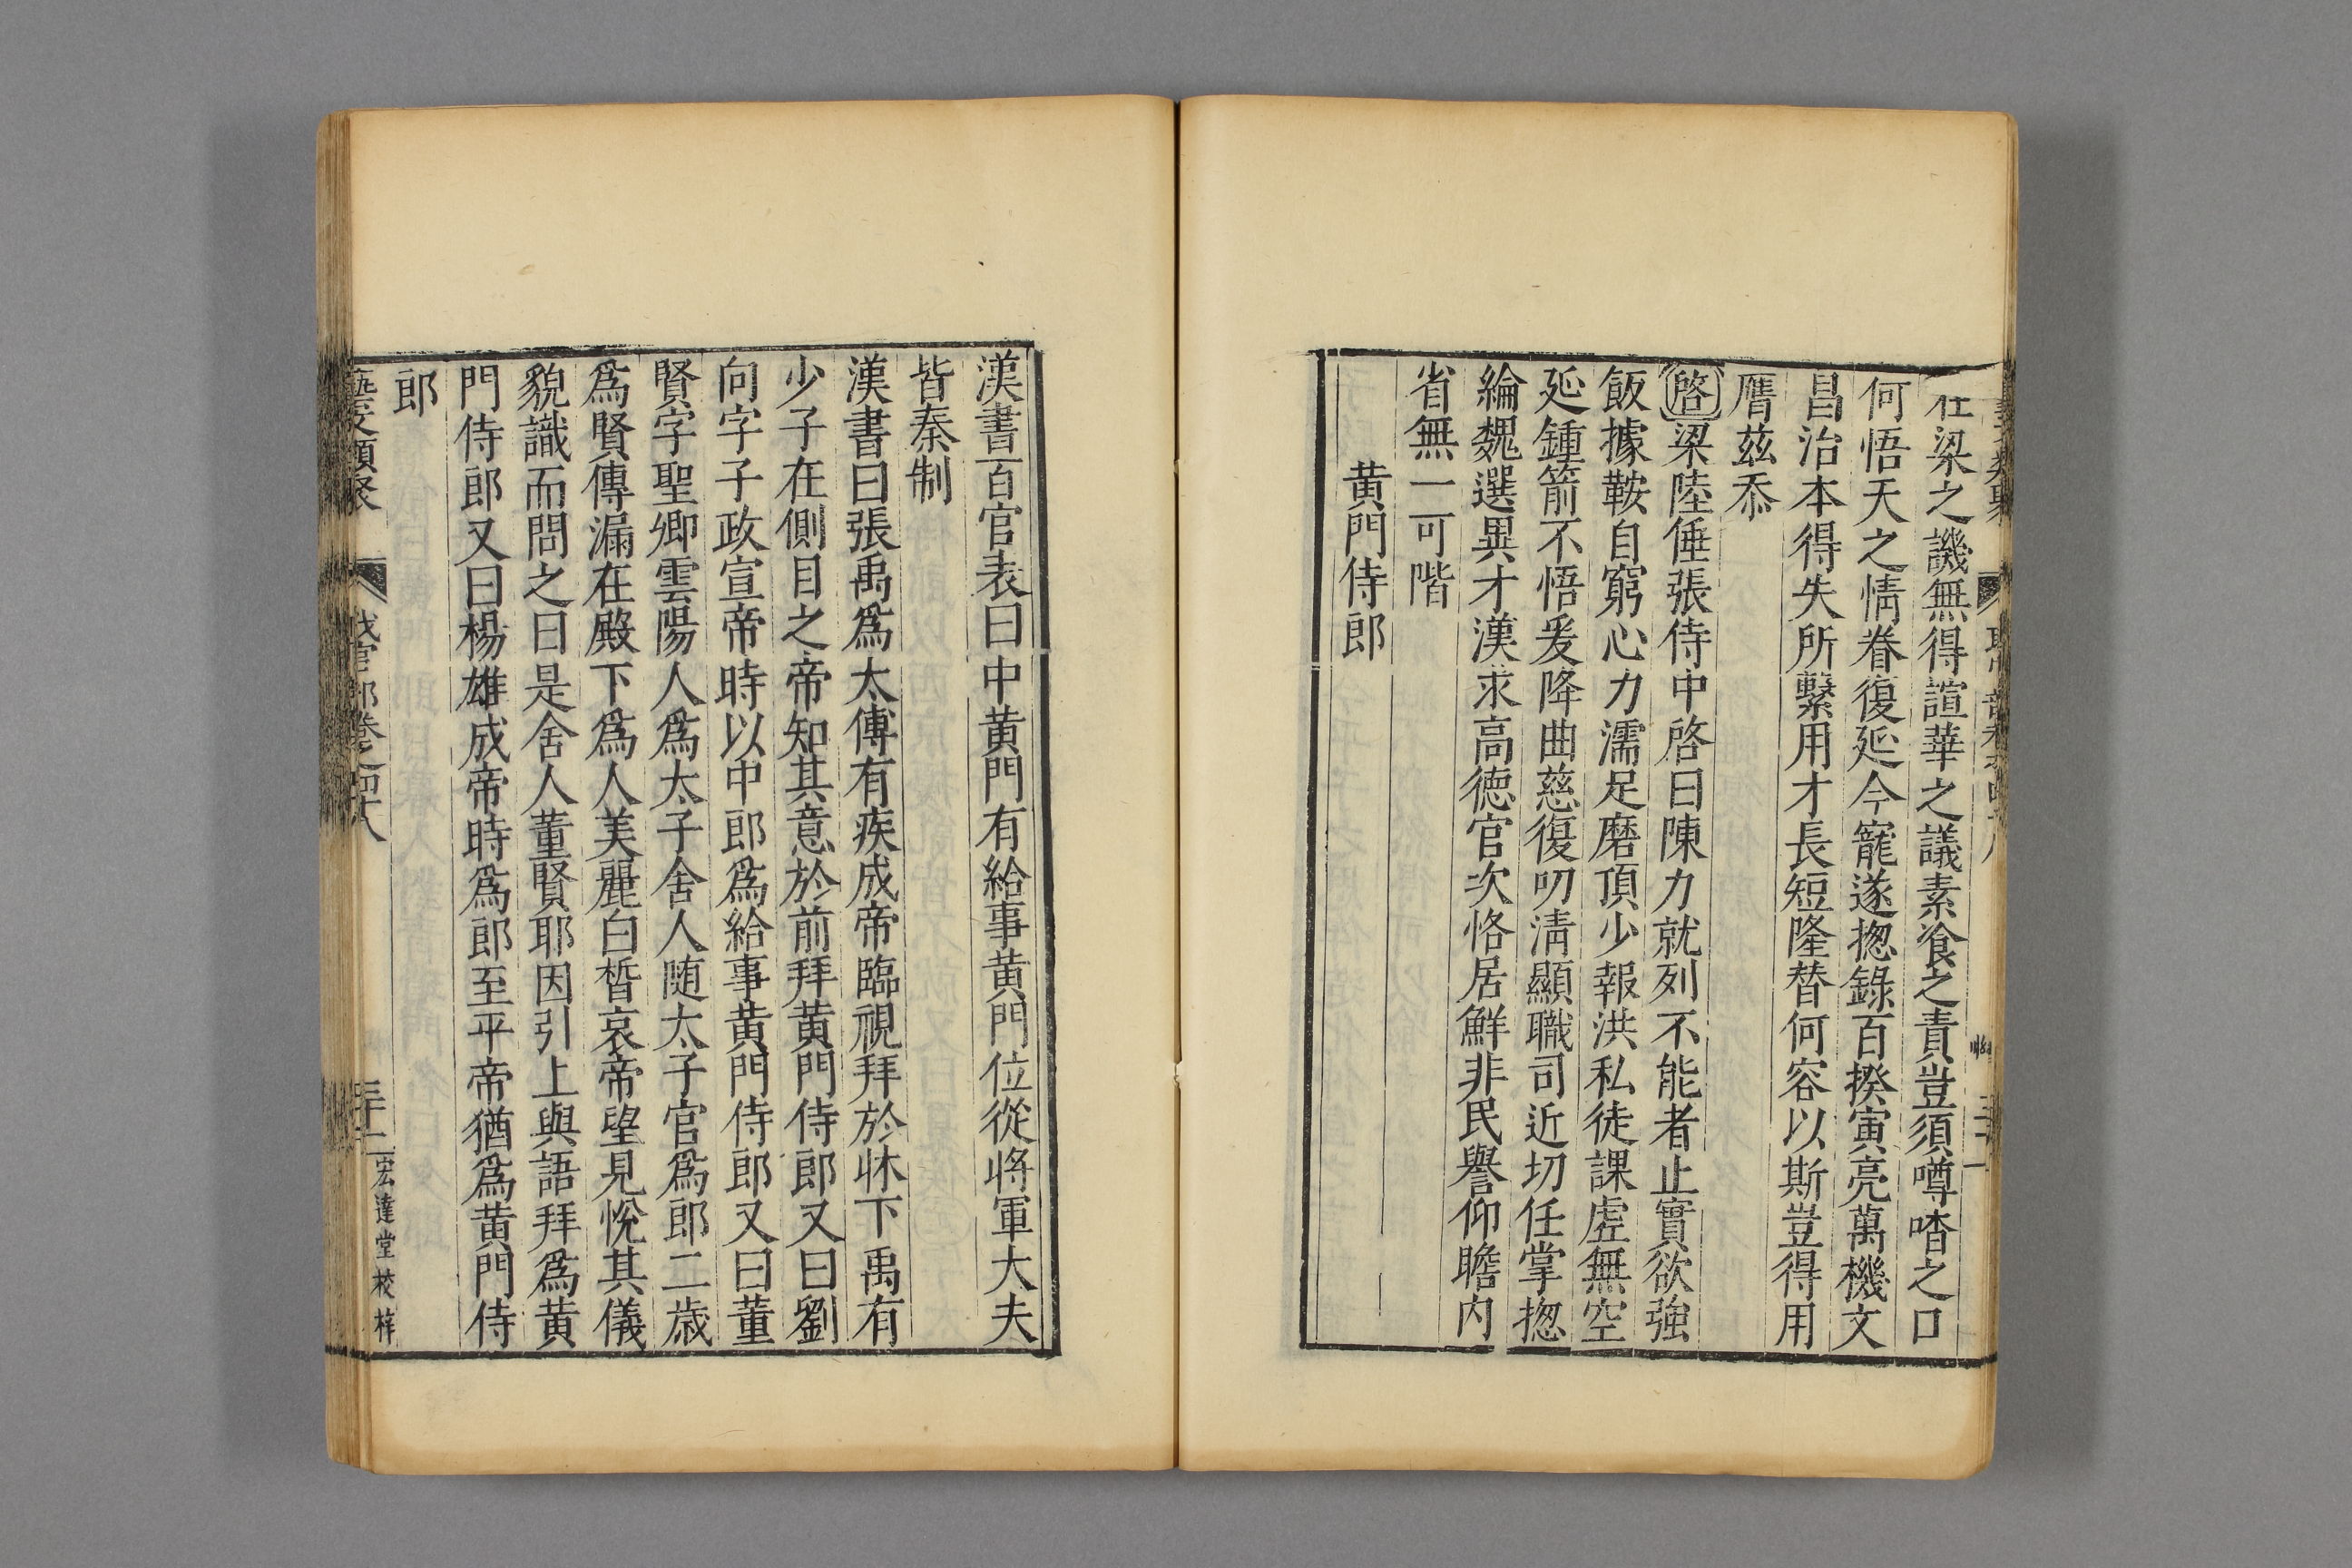 在梁之譏無得諠華之議素飡之責豈須噂喳之口
何悟天之情眷復延今寵遂揔錄百揆寅亮萬機文
昌治本得失所繫用才長短隆替何容以斯豈得用
膺茲忝
啓梁陸倕張侍中啓曰陳力就列不能者止實欲強
飯據鞍自窮心力濡足磨頂少報洪私徒課虛無空
延鍾箭不悟爰降曲慈復叨淸顯職司近切任掌揔
綸魏選異才漢求高德官次恪居鮮非民譽仰瞻內
省無一可階
黃門侍郎
漢書百官表曰中黃門有給事黃門位從將軍大夫
皆秦制
漢書曰張禹爲太傅有疾成帝臨視拜於牀下禹有
少子在側目之帝知其意於前拜黃門侍郎又曰劉
向字子政宣帝時以中郎爲給事黃門侍郎又曰董
賢字聖卿雲陽人爲太子舍人隨太子官爲郎二歲
爲賢傳漏在殿下爲人美麗白晳哀帝望見悅其儀
貌識而問之曰是舍人董賢耶因引上與語拜爲黃
門侍郎又曰楊雄成帝時爲郎至平帝猶爲黃門侍
郎
宏達堂校梓